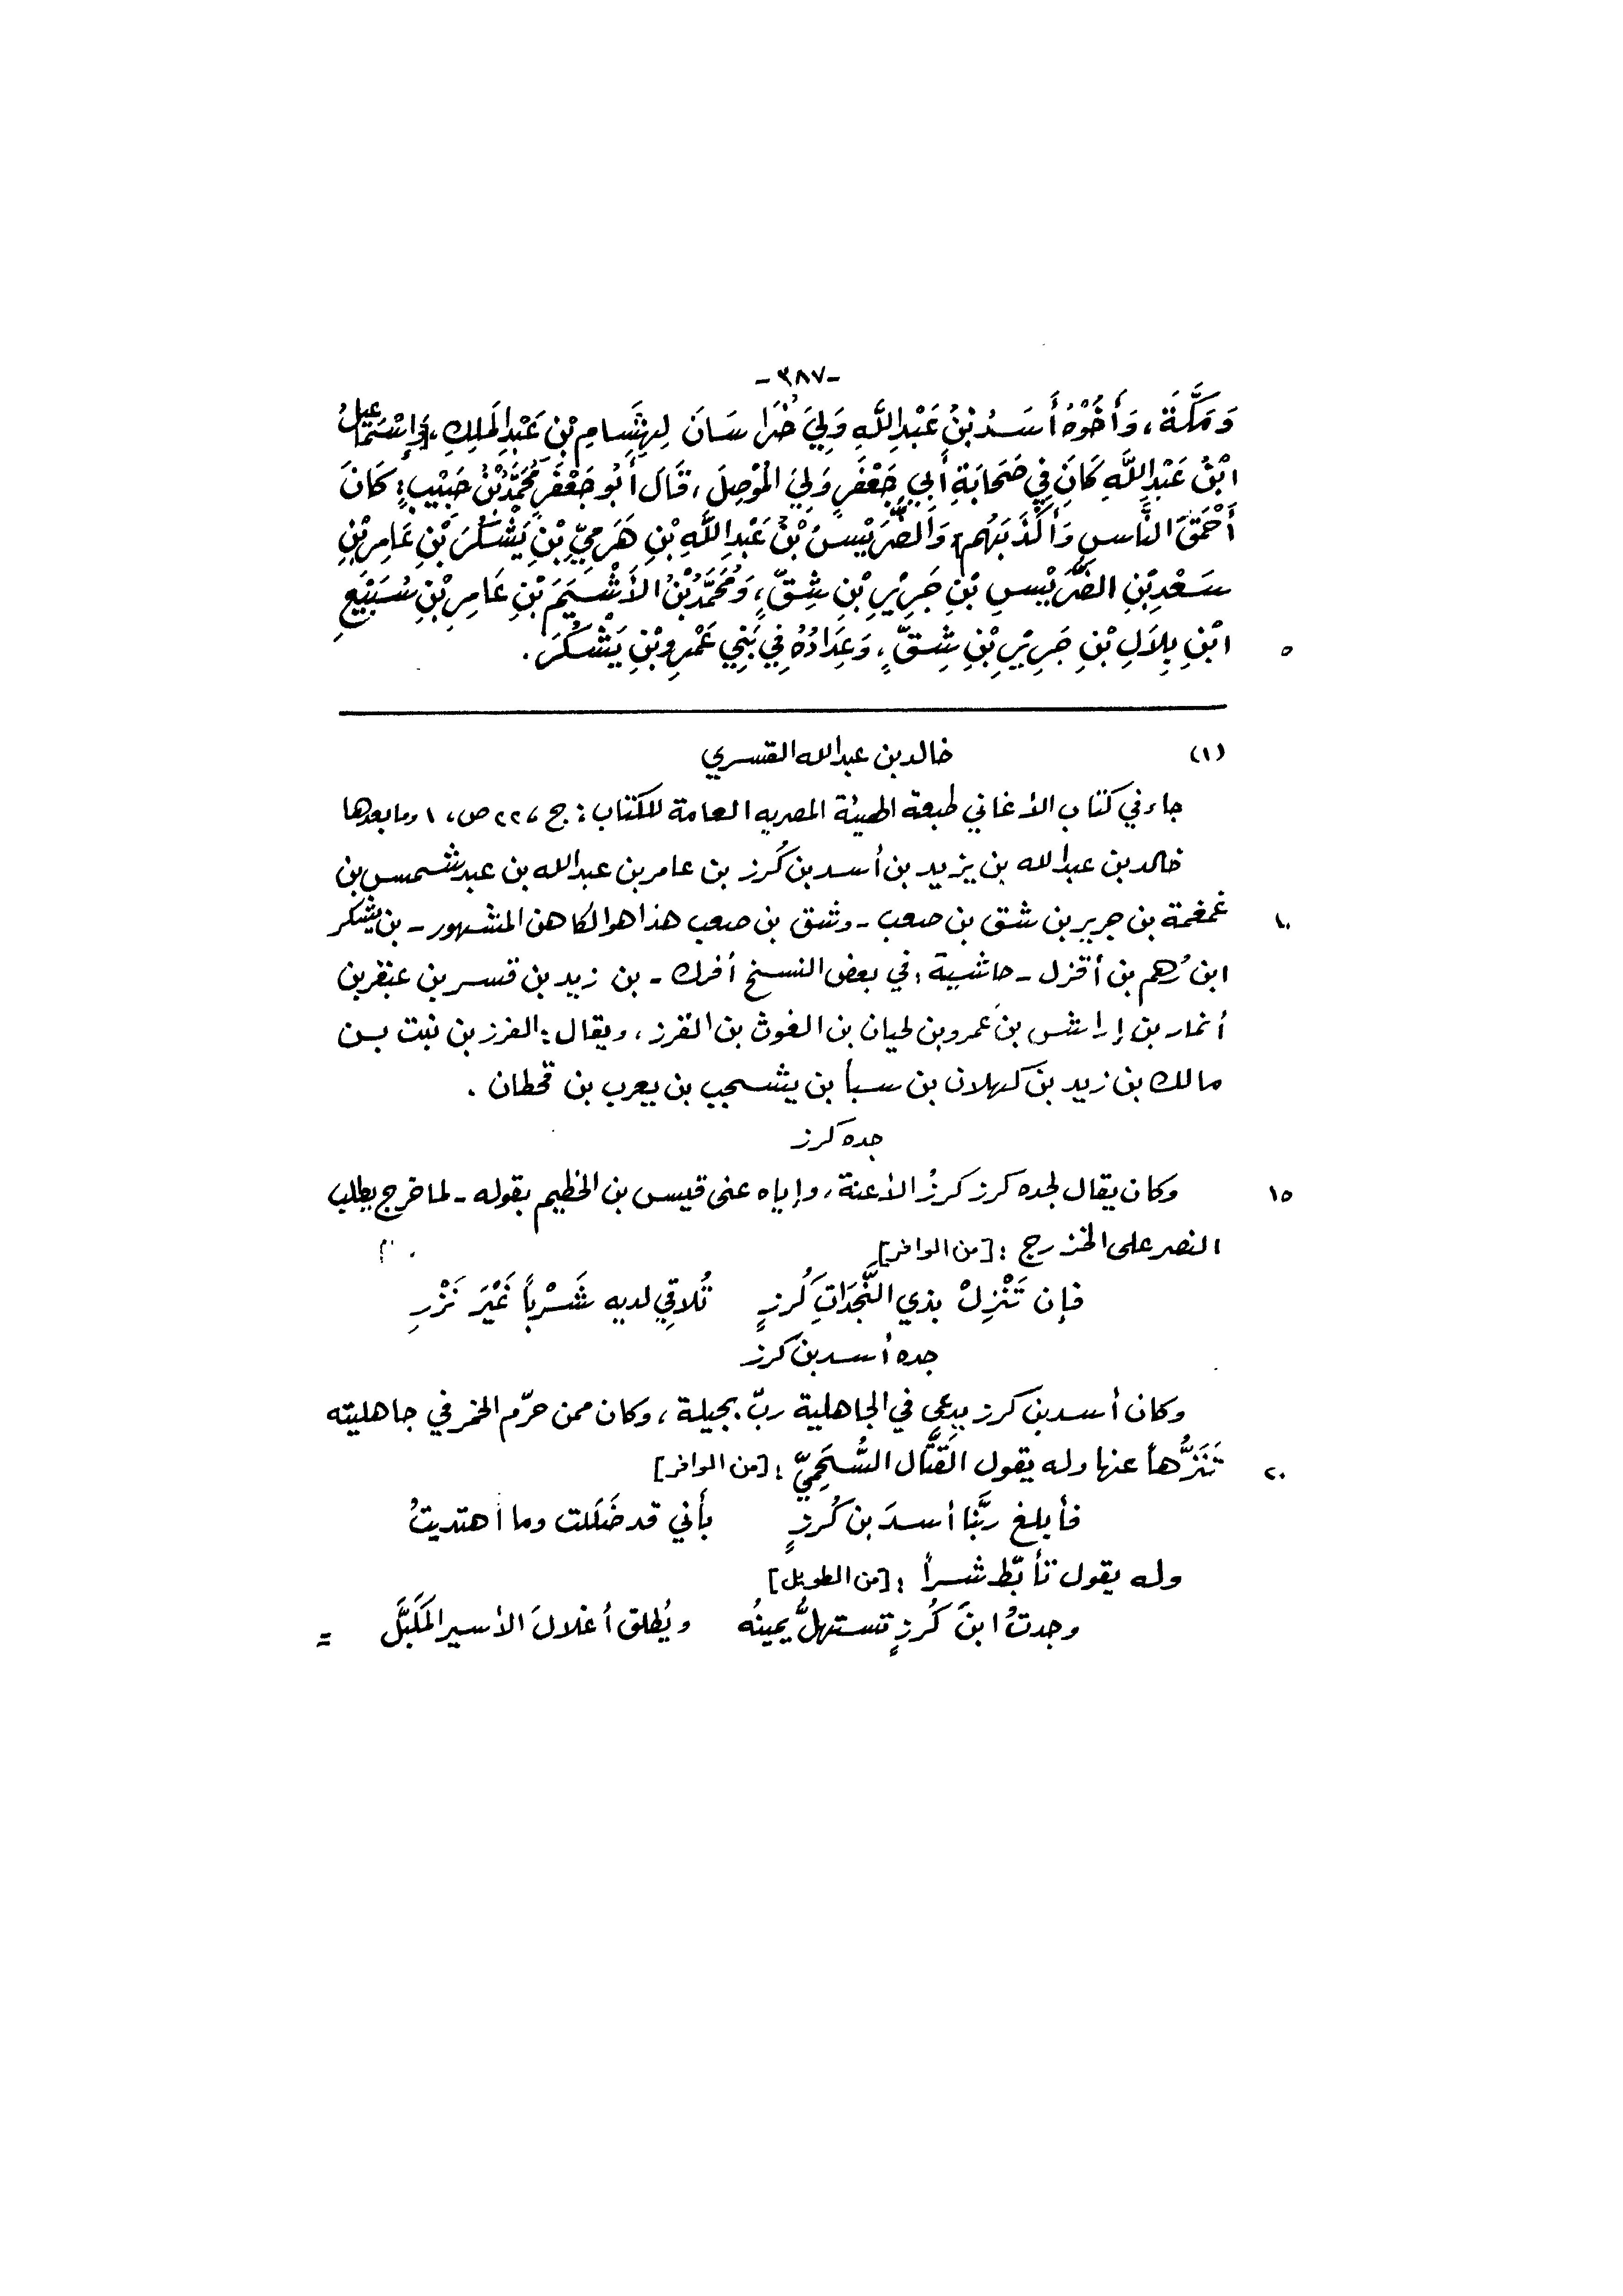 -٣٨٧-
وَمَكَّةَ، وَأَخُوْهُ أَسَدُ بْنُ عَبْدِ اللَّهِ وَلِيَ خُرَاسَانَ لِهِشَامِ بْنِ عَبْدِ الْمَلِكِ، [وَإِسْمَاعِيلُ
ابْنُ عَبْدِ اللَّهِ كَانَ فِي صَحَابَةِ أَبِي جَعْفَرٍ وَلِيَ الْمَوْصِلَ، قَالَ أَبُو جَعْفَرٍ مُحَمَّدُ بْنُ حَبِيْبٍ: كَانَ
أَحْمَقَ النَّاسِ وَأَكْذَبَهُم] وَالضُّرَيْسُ بْنُ عَبْدِ اللَّهِ بْنِ هَرَمِيِّ بْنِ يَشْكُرَ بْنِ عَامِرِ بْنِ
سَعْدِ بْنِ الضُّرَيْسِ بْنِ جَرِيْرِ بْنِ شِقٍّ، وَمُحَمَّدُ بْنُ الأَشْيَمِ بْنِ عَامِرِ بْنِ سُبَيْعِ
٥ ابْنِ بِلَالِ بْنِ جَرِيْرِ بْنِ شِقٍّ، وَعِدَادُهُ فِي بَنِي عَمْرِو بْنِ يَشْكُرَ.
(١) خالد بن عبد الله القسري
جاء في كتاب الأغاني طبعة الهيئة المصريه العامة للكتاب: ج ٢٢، ص، ١ وما بعدها
خالد بن عبد الله بن يزيد بن أسد بن كُرز بن عامر بن عبد الله بن عبد شمس بن
١٠ غمغمة بن جرير بن شق بن صعب - وشق بن صعب هذا هو الكاهن المشهور - بن يشكر
ابن رُهم بن أقزل - حاشية: في بعض النسخ أفرك - بن زيد بن قسر بن عبقر بن
أنمار بن إراش بن عمرو بن لحيان بن الغوث بن القرز، ويقال: الفرز بن نبت بـن
مالك بن زيد بن كهلان بن سبأ بن يشجب بن يعرب بن قحطان.
جده كرز
١٥ وكان يقال لجده كرز كرزُ الأعنة، وإياه عنى قيس بن الخطيم بقوله - لما خرج يطلب
النصر على الخزرج: [من الوافر]
فإن تَنْزِلْ بذي النَّجَدَاتِ كُرزٍ تُلاقِي لديه شَسْرباً غَيْرَ نَزْرِ
جده أسد بن كرز
وكان أسد بن كرز يدعى في الجاهلية ربّ بجيلة، وكان ممن حرّم الخمر في جاهليته
٢٠ تَنَزُّهاً عنها وله يقول القَتَّال السُّحَمِيّ: [من الوافر]
فأبلغ ربَّنا أسدَ بن كُرزٍ بأني قد ضَلَلت وما اهتديتُ
وله يقول تأبّط شراً: [من الطويل]
وجدتُ ابنَ كُرزٍ تستهلُّ يمينُه ويُطلق أغلالَ الأسير المُكَبَّل =